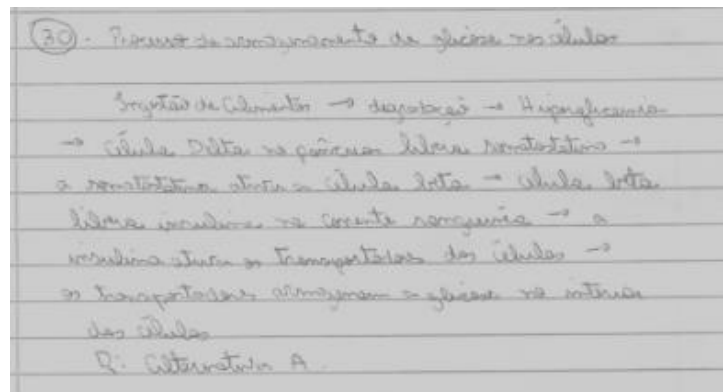 30. Processo de armazenamento de glicose nas células
Ingestão de Alimentos → digestão → Hiperglicemia
→ Célula Delta no pâncreas libera somatostatina →
a somatostatina ativa a célula beta → célula beta
libera insulina na corrente sanguínea → a
insulina ativa os transportadores das células →
os transportadores armazenam a glicose no interior
das células
R: Alternativa A.